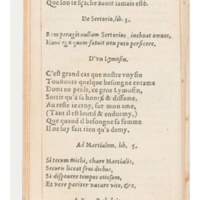 De Sertorio, lib. 3.
Rem peragit nullam Sertorius, inchoat omnes,
Hunc ego quum futuit non puto perficere.
D'un Lymosin.
C'est grand cas que nostre voysin
Tousiours quelque besongne entame
Dont ne peult, ce gros Lymosin,
Sortir qu'à sa honte & diffame.
Au reste ie croy, sur mon ame,
(Tant il est lourd & endormy,)
Que quand il besongne sa femme
Il ne luy fait rien qu'à demy.
Ad Martialem, lib. 5.
Si tecum mihi, chare Martialis,
Securis liceat frui diebus,
Si disponere tempus otiosum,
Et verae pariter vacare vitae, &c.